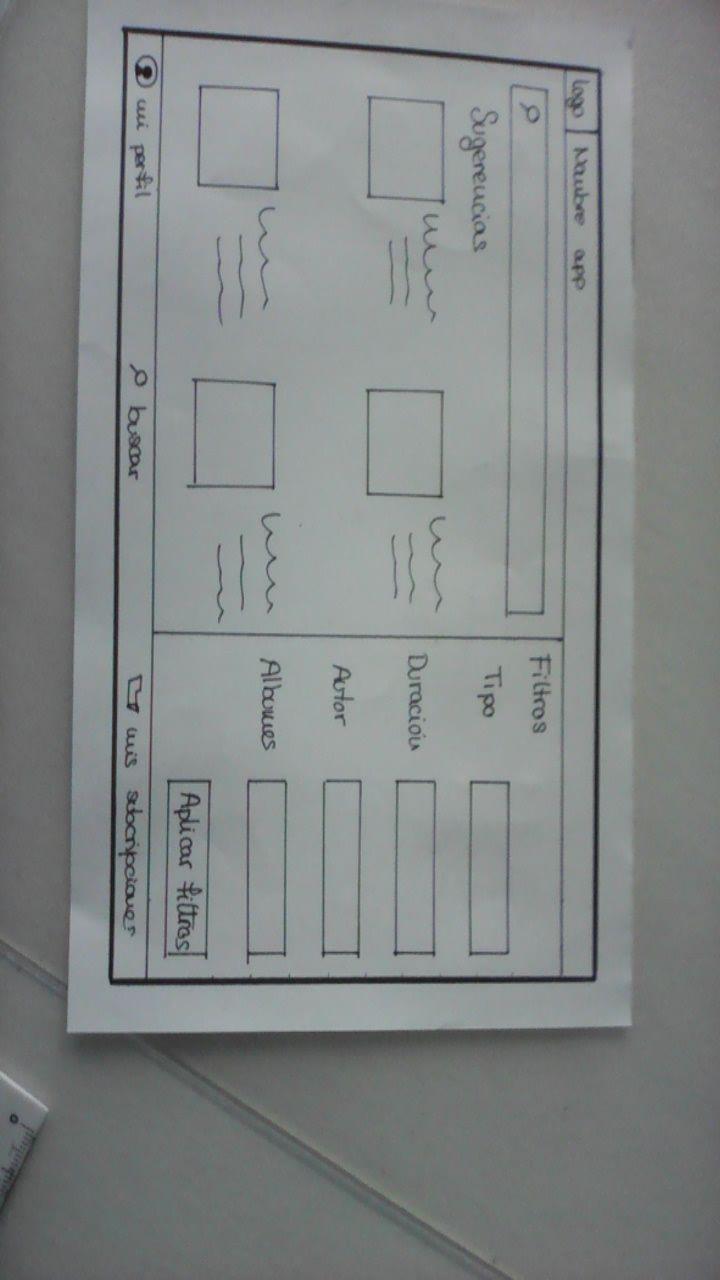 logo Nombre app
Sugerencias
Filtros
Tipo
Duración
Autor
Albumes
Aplicar filtros
mi perfil buscar mis subscripciones